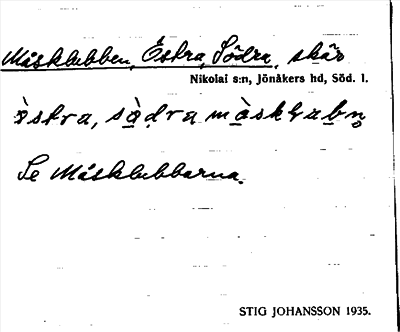 Måsklubben, Östra, Södra, skär
Nikolai s:n, Jönåkers hd, Söd. l.
Se Måsklubbarna.
STIG JOHANSSON 1935.